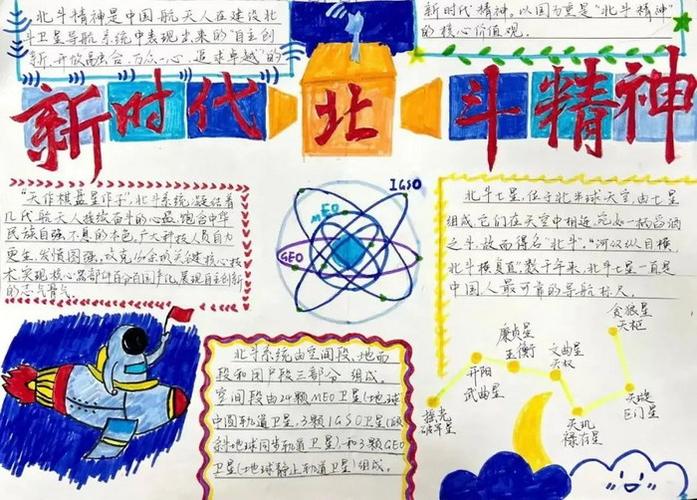 北斗精神是中国航天人在建设北
斗卫星导航系统中表现出来的“自主创
新、开放融合、万众一心、追求卓越”的
新时代精神。以国为重是“北斗精神”
的核心价值观。
新时代北斗精神
“天作棋盘星作子”,北斗系统凝结着
几代航天人接续奋斗的心血,饱含中华
民族自强不息的本色,广大科技人员自力
更生、发愤图强,攻克160余项关键核心技
术,实现核心器部件百分百国产化,展现自主创新
的志气骨气。
IGSO
MEO
GEO
北斗七星,位于北半球天空,由七星
组成,它们在天空中相连,宛如一柄舀酒
之斗,故而得名“北斗”。“河汉纵且横,
北斗横复直”,数千年来,北斗七星一直是
中国人最可靠的导航标尺。
北斗系统由空间段、地面
段和用户段三部分组成。
空间段由24颗MEO卫星(地球
中圆轨道卫星、3颗IGSO卫星(倾
斜地球同步轨道卫星)和3颗GEO
卫星(地球静止轨道卫星)组成。
贪狼星
天枢
廉贞星
玉衡
文曲星
天权
开阳
武曲星
天璇
巨门星
摇光
破军星
天玑
禄存星